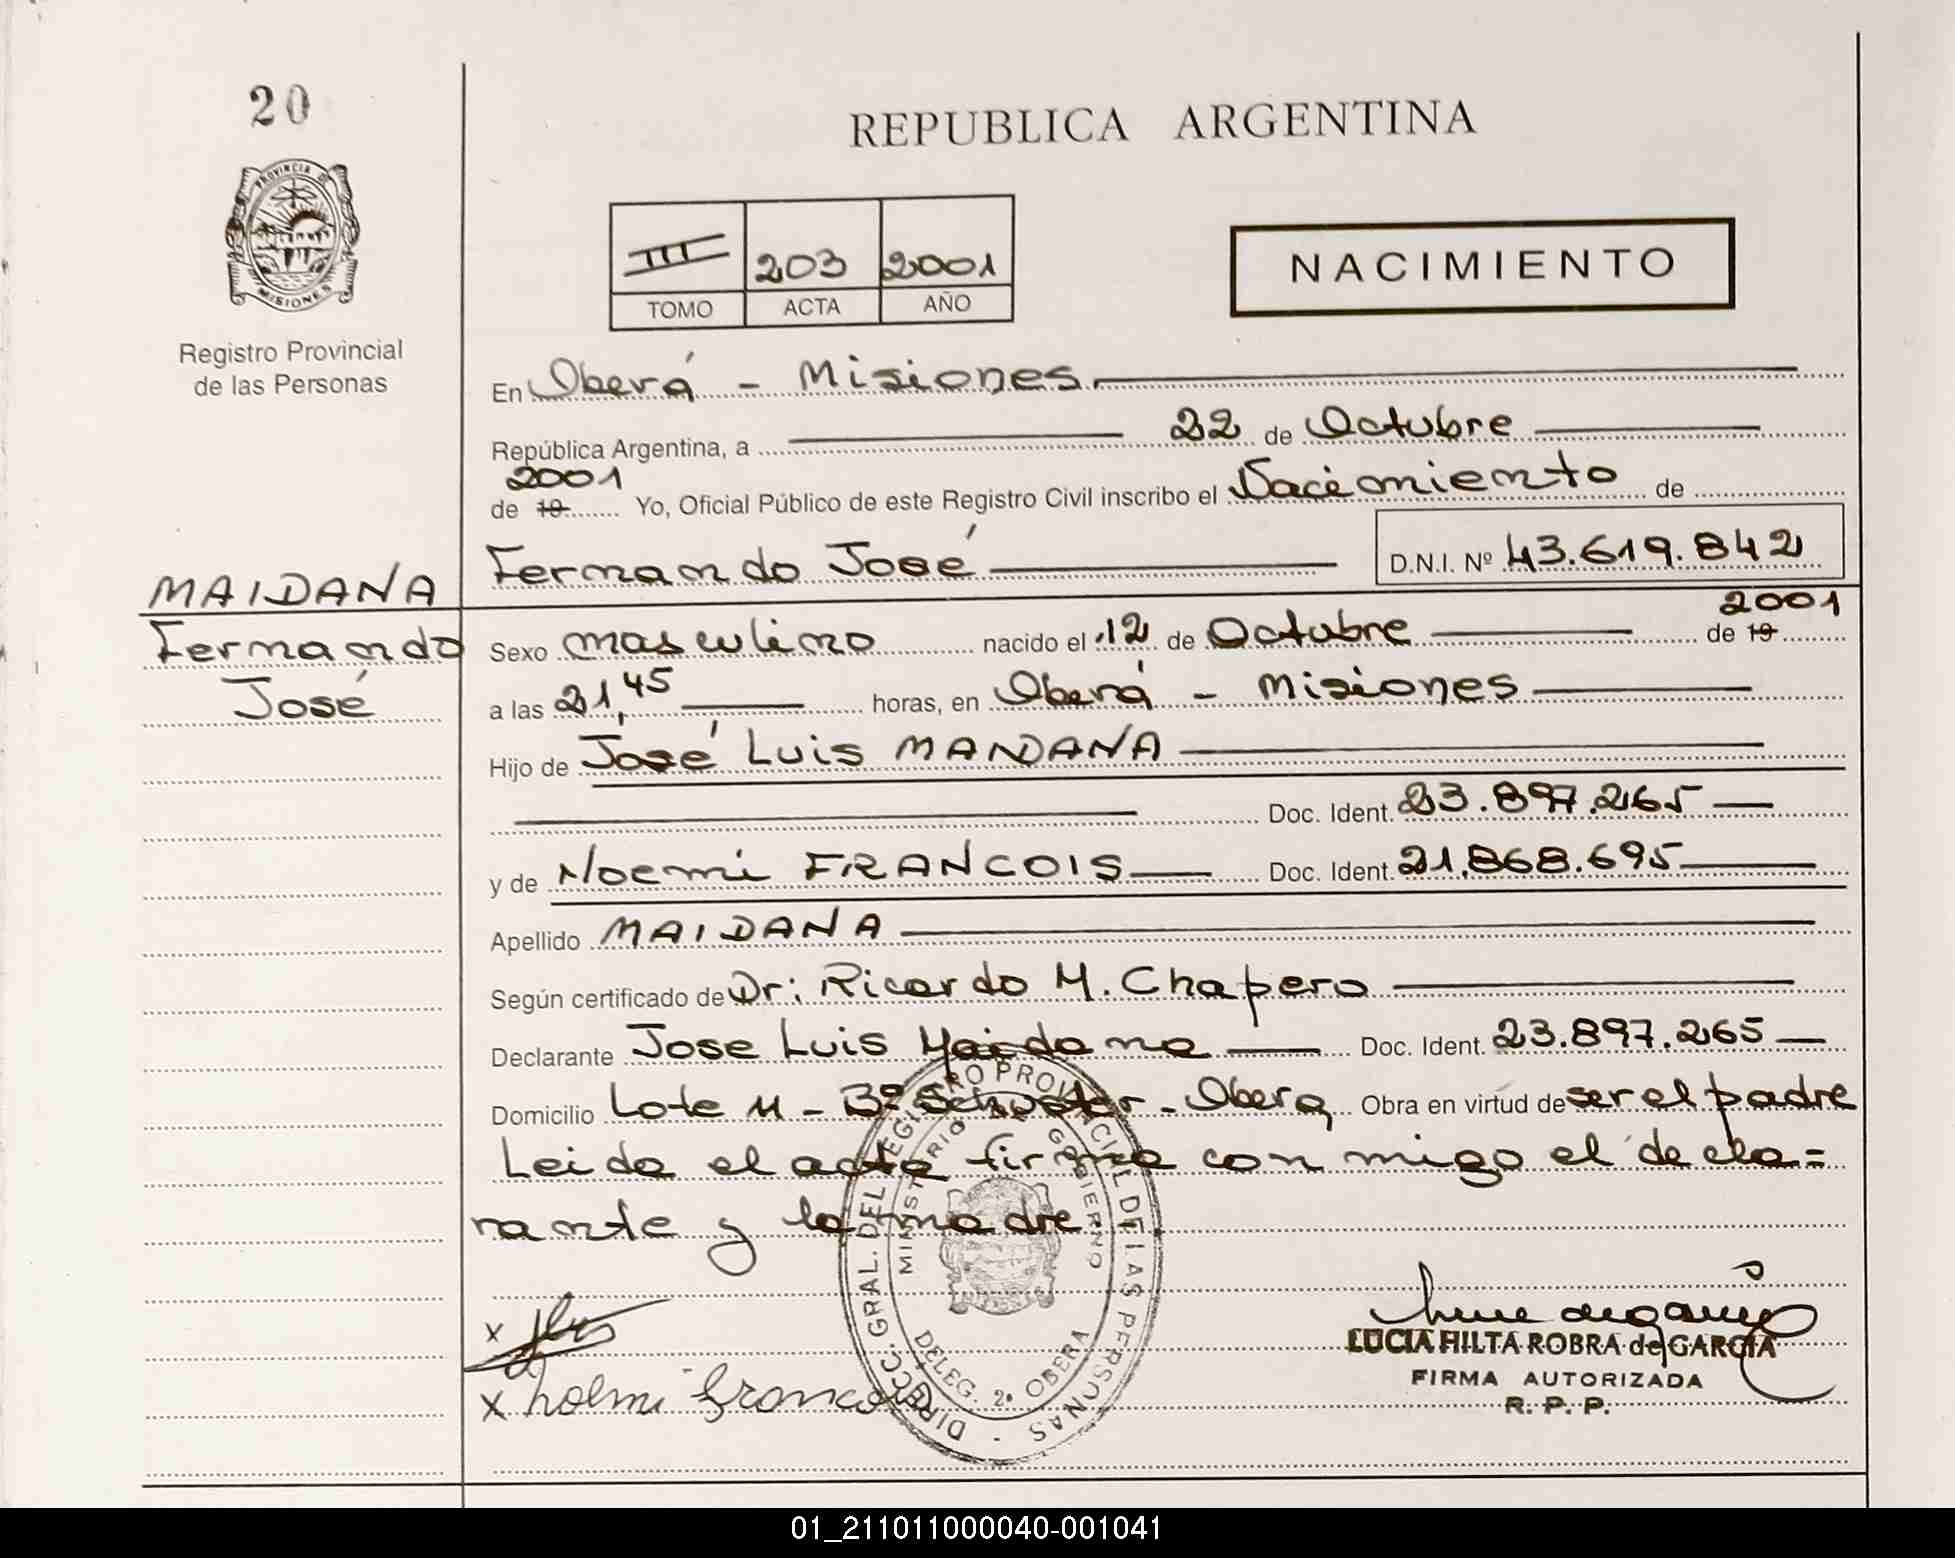 20
PROVINCIA DE
MISIONES
Registro Provincial
de las Personas
REPUBLICA ARGENTINA
III 203 2001
TOMO ACTA AÑO
NACIMIENTO
En Oberá - Misiones.
República Argentina, a 22 de Octubre
2001
de 19 Yo, Oficial Público de este Registro Civil inscribo el Nacimiento de
Fernando José D.N.I. Nº 43.619.842
MAIDANA
Fernando
José
2001
Sexo masculino nacido el 12 de Octubre de 19
a las 21,45 horas, en Oberá - Misiones
Hijo de José Luis MAIDANA
Doc. Ident. 23.897.265
y de Noemi FRANCOIS Doc. Ident. 21.868.695
Apellido MAIDANA
Según certificado de Dr: Ricardo M. Chapero
Declarante Jose Luis Maidana Doc. Ident. 23.897.265
Domicilio Lote 11 - Bº Schuster - Obera Obra en virtud de ser el padre
Leida el acta firma con migo el decla=
rante y la madre
DIREC. GRAL. DEL REGISTRO PROVINCIAL DE LAS PERSONAS
MINISTERIO GOBIERNO
DELEG. 2ª OBERA
x
x noemi francois
LUCIA HILTA ROBRA de GARCIA
FIRMA AUTORIZADA
R. P. P.
01_211011000040-001041